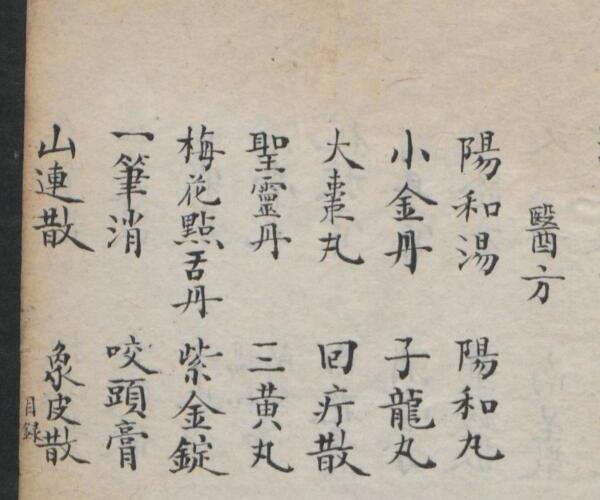 醫方
陽和湯 陽和丸
小金丹 子龍丸
大棗丸 回疔散
聖靈丹 三黄丸
梅花點舌丹 紫金錠
一筆消 咬頭膏
山連散 象皮散
目録